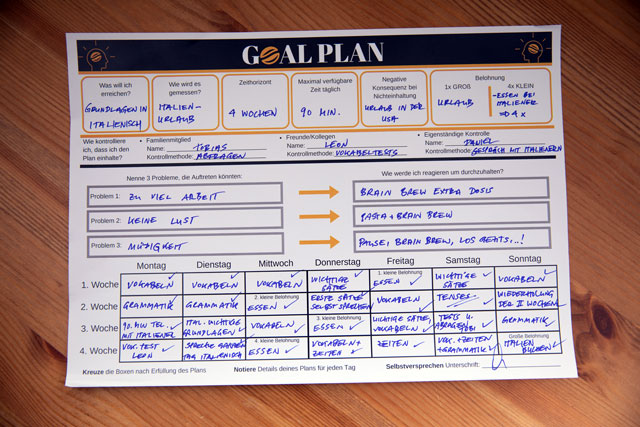 GOAL PLAN
Was will ich erreichen?
GRUNDLAGEN IN ITALIENISCH
Wie wird es gemessen?
ITALIEN-URLAUB
Zeithorizont
4 WOCHEN
Maximal verfügbare Zeit täglich
90 MIN.
Negative Konsequenz bei Nichteinhaltung
URLAUB IN DER USA
Belohnung
1x GROß
URLAUB
4x KLEIN
-ESSEN BEI ITALIENER
⇒ 4x
Wie kontrolliere ich, dass ich den Plan einhalte?
• Familienmitglied
Name: TOBIAS
Kontrollmethode: ABFRAGEN
• Freunde/Kollegen
Name: LEON
Kontrollmethode: VOKABELTESTS
• Eigenständige Kontrolle
Name: DANIEL
Kontrollmethode: GESPRÄCH MIT ITALIENERN
Nenne 3 Probleme, die Auftreten könnten:
Wie werde ich reagieren um durchzuhalten?
Problem 1: ZU VIEL ARBEIT
BRAIN BREW EXTRA DOSIS
Problem 2: KEINE LUST
PASTA + BRAIN BREW
Problem 3: MÜDIGKEIT
PAUSE, BRAIN BREW, LOS GEHTS...!
Montag Dienstag Mittwoch Donnerstag Freitag Samstag Sonntag
1. Woche
VOKABELN
VOKABELN
VOKABELN
WICHTIGE SÄTZE
1. kleine Belohnung
ESSEN
WICHTIGE SÄTZE
VOKABELN
2. Woche
GRAMMATIK
GRAMMATIK
2. kleine Belohnung
ESSEN
ERSTE SÄTZE SELBST SPRECHEN
VOKABELN
TENSES
WIEDERHOLUNG DER 2 WOCHEN
3. Woche
90 MIN TEL. MIT ITALIENER
ITAL. WICHTIGE GRUNDLAGEN
VOKABELN
3. kleine Belohnung
ESSEN
WICHTIGE SÄTZE, VOKABELN
TESTS U. ABFRAGEN TOBI
GRAMMATIK
4. Woche
VOK. TEST LEON
SPRACHE GANZEN TAG ITALIENISCH
4. kleine Belohnung
ESSEN
VOKABELN + ZEITEN
ZEITEN
VOK. + ZEITEN + GRAMMATIK
Große Belohnung
ITALIEN BUCHEN
Kreuze die Boxen nach Erfüllung des Plans
Notiere Details deines Plans für jeden Tag
Selbstversprechen Unterschrift: